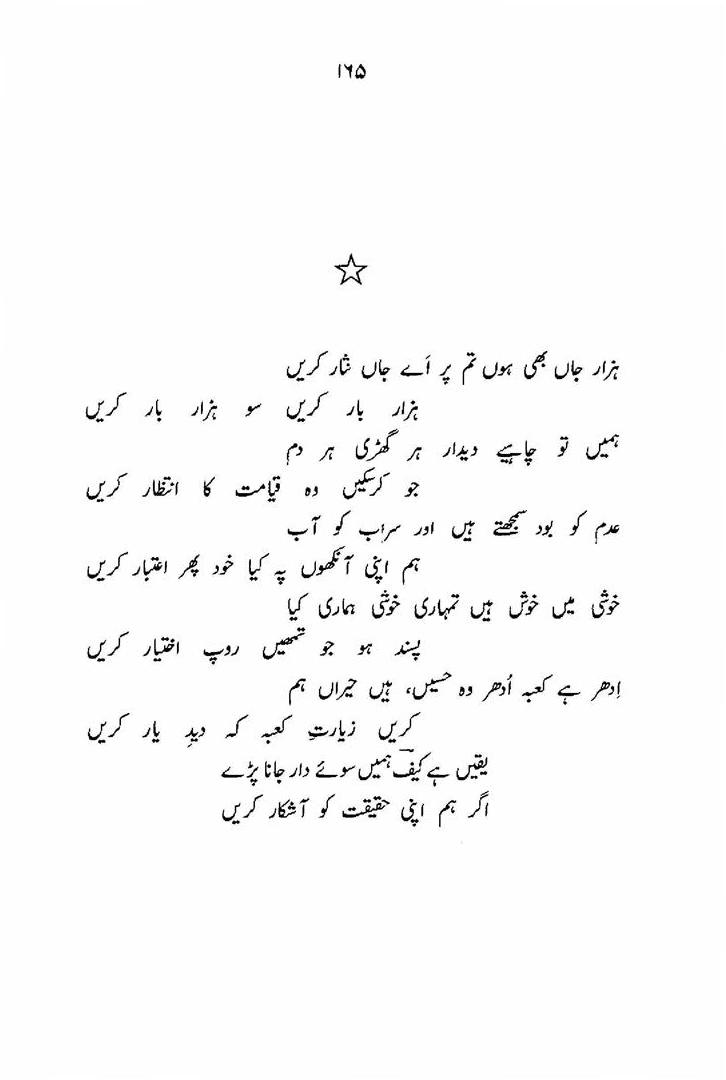 ۱۶۵
ہزار جاں بھی ہوں تم پر اَے جاں نثار کریں
ہزار بار کریں سو ہزار بار کریں
ہمیں تو چاہیے دیدار ہر گھڑی ہر دم
جو کرسکیں وہ قیامت کا انتظار کریں
عدم کو بود سمجھتے ہیں اور سراب کو آب
ہم اپنی آنکھوں پہ کیا خود پھر اعتبار کریں
خوشی میں خوش ہیں تمہاری خوشی ہماری کیا
پسند ہو جو تمھیں روپ اختیار کریں
اِدھر ہے کعبہ اُدھر وہ حسیں، ہیں حیراں ہم
کریں زیارتِ کعبہ کہ دیدِ یار کریں
یقیں ہے کیفؔ ہمیں سوئے دار جانا پڑے
اگر ہم اپنی حقیقت کو آشکار کریں